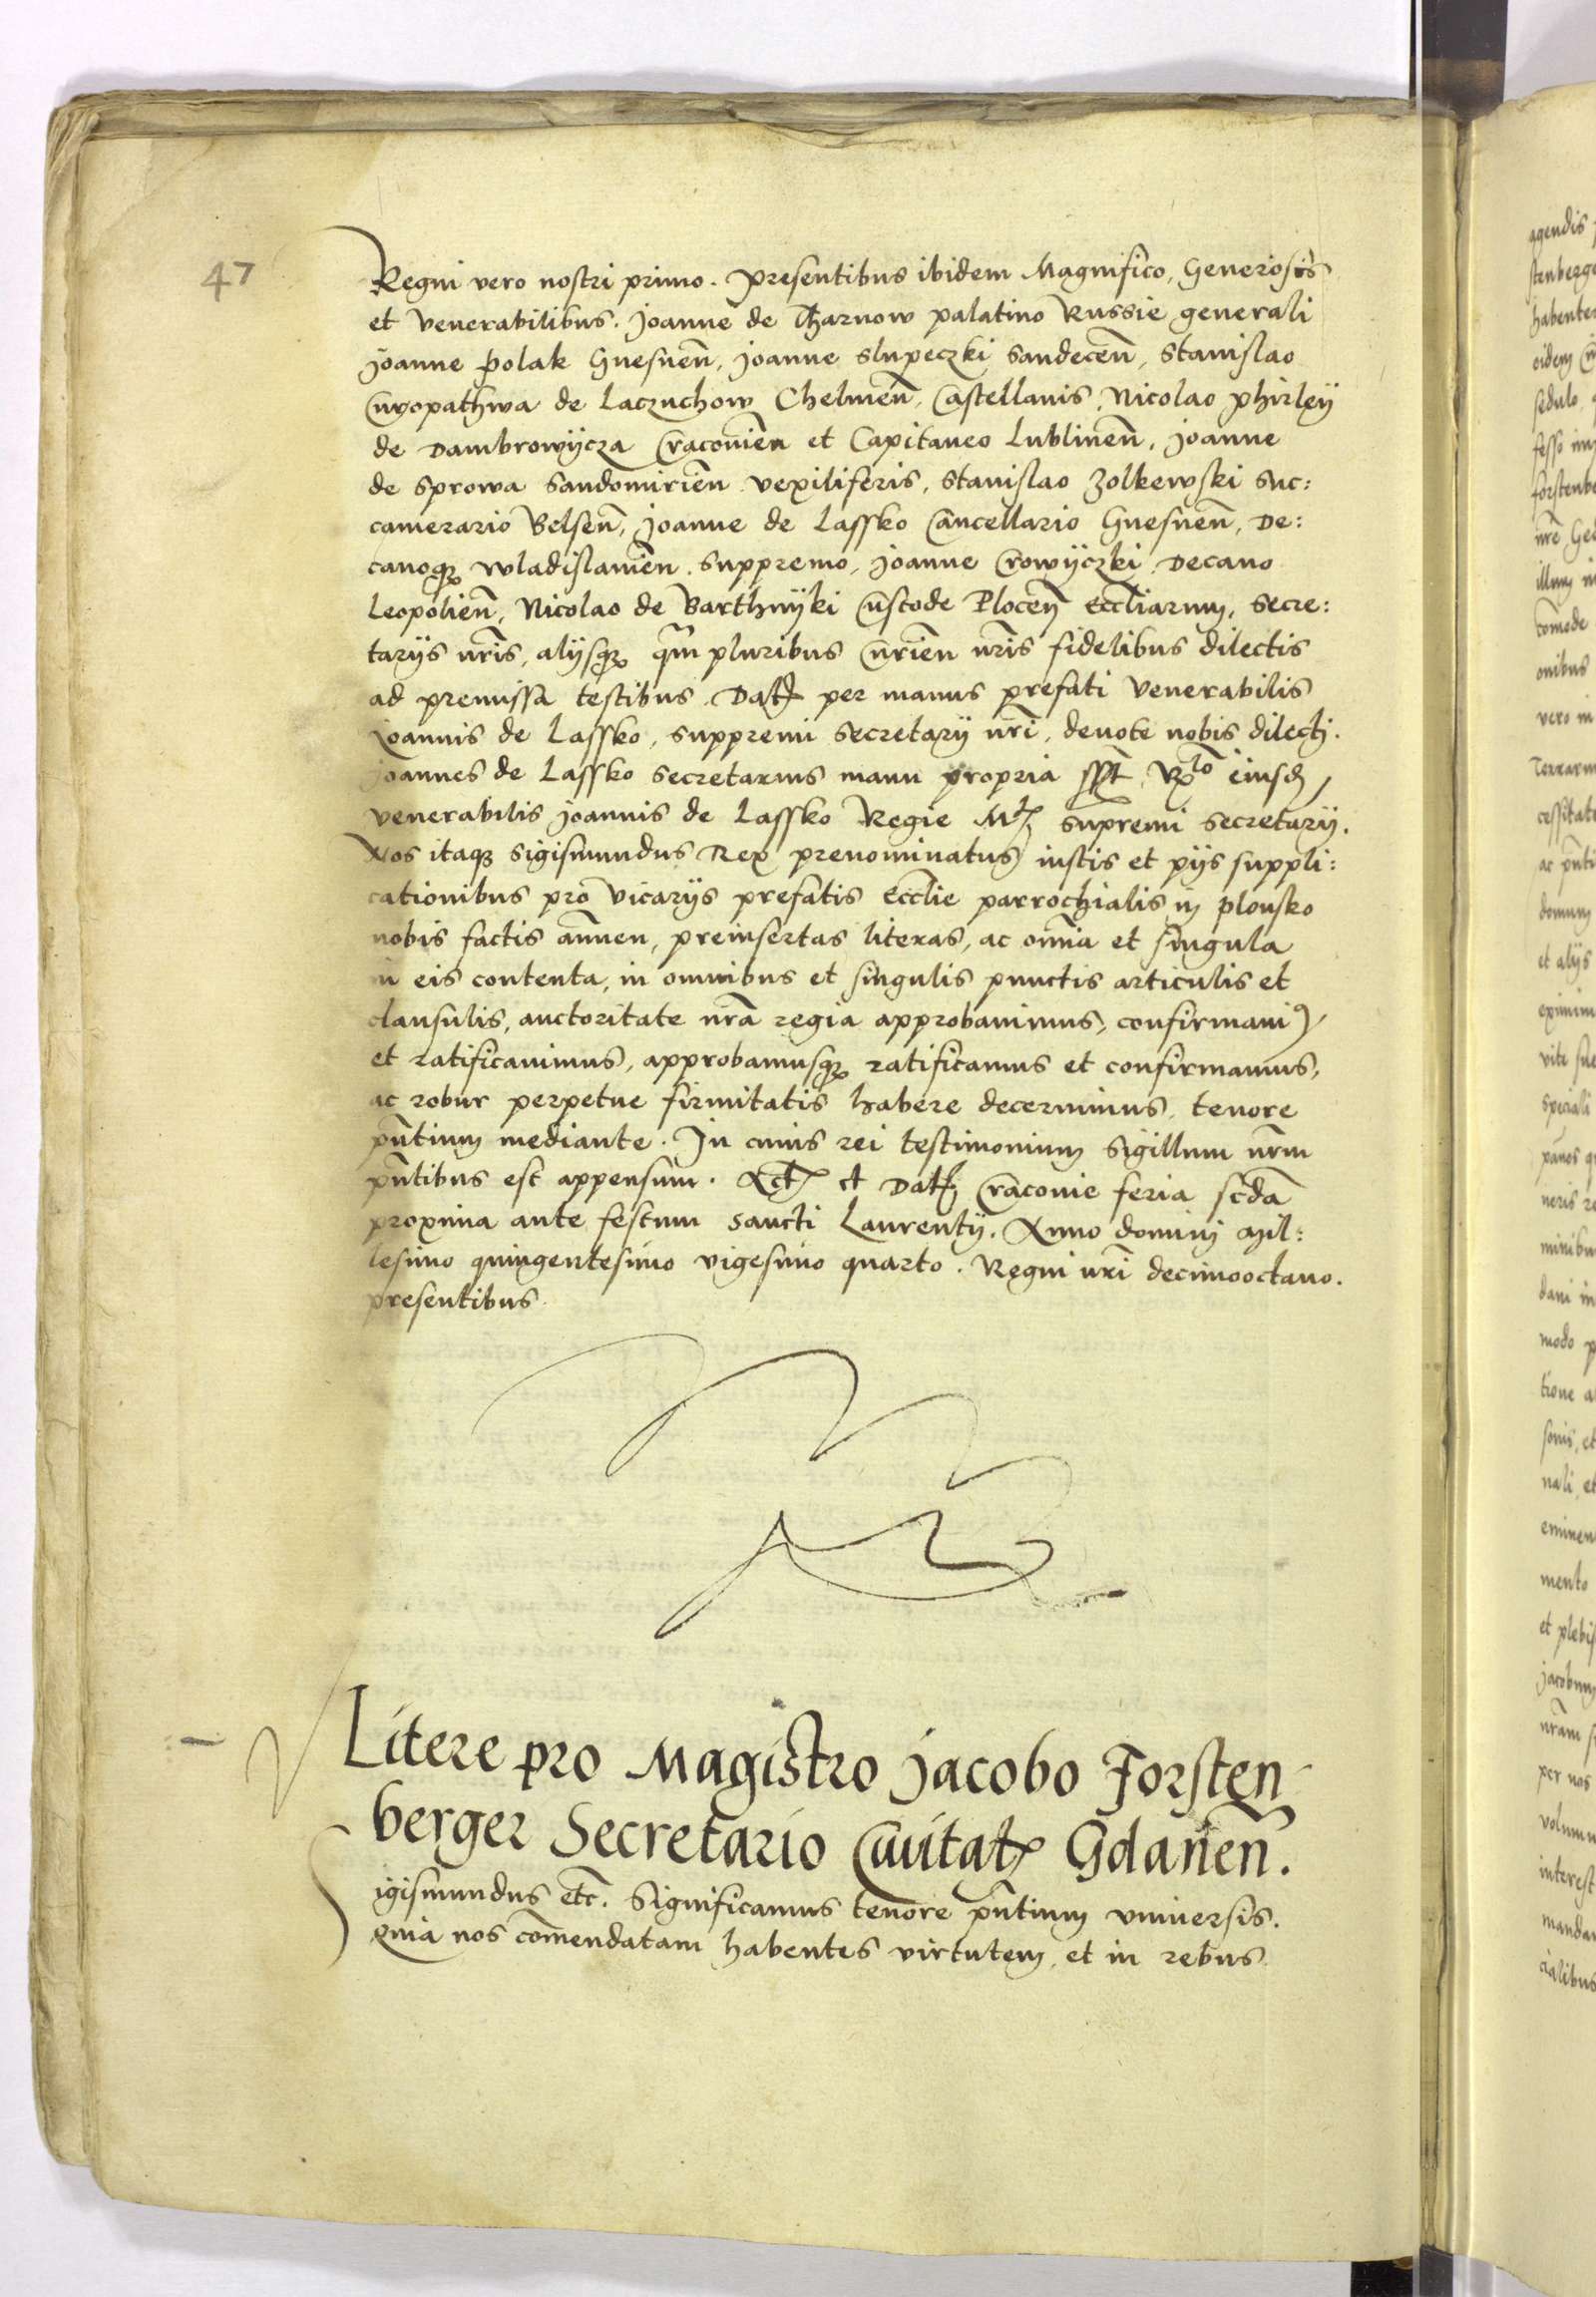 47
Regni vero nostri primo. Presentibus ibidem Magnifico, Generosis
et Venerabilibus. Joanne de Tharnow palatino Russie generali
Joanne Polak Gnesneñ, Joanne Slupeczki Sandeceñ, Stanislao
Curopathwa de Laczuchow Chelmeñ, Castellanis, Nicolao Phirleÿ
de Dambrowÿcza Cracovieñ et Capitaneo Lublineñ, Joanne
de Sprowa Sandomirieñ vexiliferis, Stanislao Zolkewski Suc:
camerario Belseñ, Joanne de Lassko Cancellario Gnesneñ, De:
canoqꝫ Wladislavieñ. suppremo, Joanne Crowÿczki Decano
Leopolieñ, Nicolao de Barthnÿki Custode Ploceñ Eccl̄iarum, Secre:
tarÿs nr̄is, alÿsqꝫ qm̄ pluribus Curieñ nr̄is fidelibus dilectis
ad premissa testibus. Datꝭ per manus prefati Venerabilis
Joannis de Lassko, suppremi Secretarÿ nr̄i, devote nobis dilecti.
Joannes de Lassko Secretarius manu propria sspt. Rlō eiusd
venerabilis Joannis de Lassko Regie Mtꝭ supremi Secretarÿ.
Nos itaqꝫ Sigismundus Rex prenominatus iustis et pÿs suppli:
cationibus pro vicarÿs prefatis Eccl̄ie parrochialis in Plonsko
nobis factis annuen, preinsertas literas, ac om̄ia et singula
in eis contenta, in omnibus et singulis punctis articulis et
clausulis, auctoritate nr̄a regia approbavimus, confirmavimꝰ
et ratificavimus, approbamusqꝫ ratificamus et confirmamus,
ac robur perpetue firmitatis habere decernimus, tenore
pn̄tium mediante. In cuius rei testimonium Sigillum nr̄m
pn̄tibus est appensum. Actꝭ et Datꝭ Cracovie feria scd̄a
proxima ante festum Sancti Laurentÿ. Anno domini Mil:
lesimo quingentesimo vigesimo quarto. Regni nr̄i decimooctavo.
presentibus.
Litere pro Magistro Jacobo Forsten-
berger Secretario Civitatꝭ Gdaneñ.
Sigismundus etc̄. Significamus tenore pn̄tium universis.
Quia nos com̄endatam habentes virtutem, et in rebus